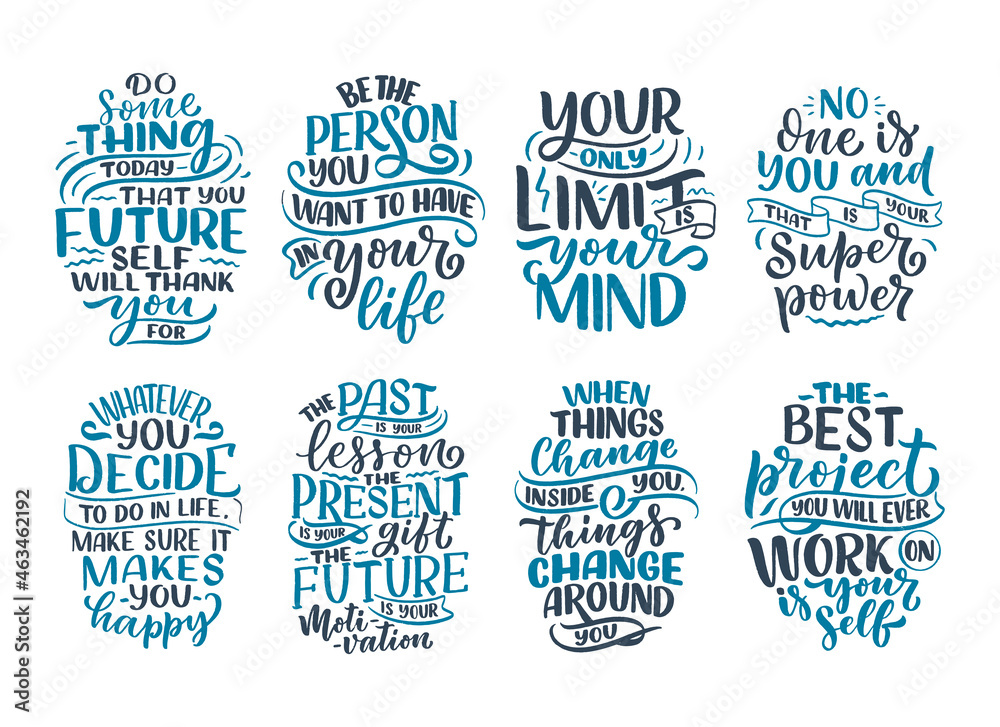 DO
Some
THING
TODAY
THAT YOU
FUTURE
SELF
WILL THANK
you
FOR
BE THE
PERSON
YOU
WANT TO HAVE
IN your
life
YOUR
ONLY
LIMIT IS
your
MIND
NO
One is
YOU and
THAT IS YOUR
Super
power
WHATEVER
YOU
DECIDE
TO DO IN LIFE,
MAKE SURE IT
MAKES
YOU
happy
THE PAST
IS YOUR
lesson
THE
PRESENT
IS YOUR gift
THE
FUTURE
IS YOUR
Moti-
vation
WHEN
THINGS
Change
INSIDE YOU,
things
CHANGE
AROUND
YOU
THE
BEST
project
YOU WILL EVER
WORK ON
is your
self
Adobe Stock | #463462192